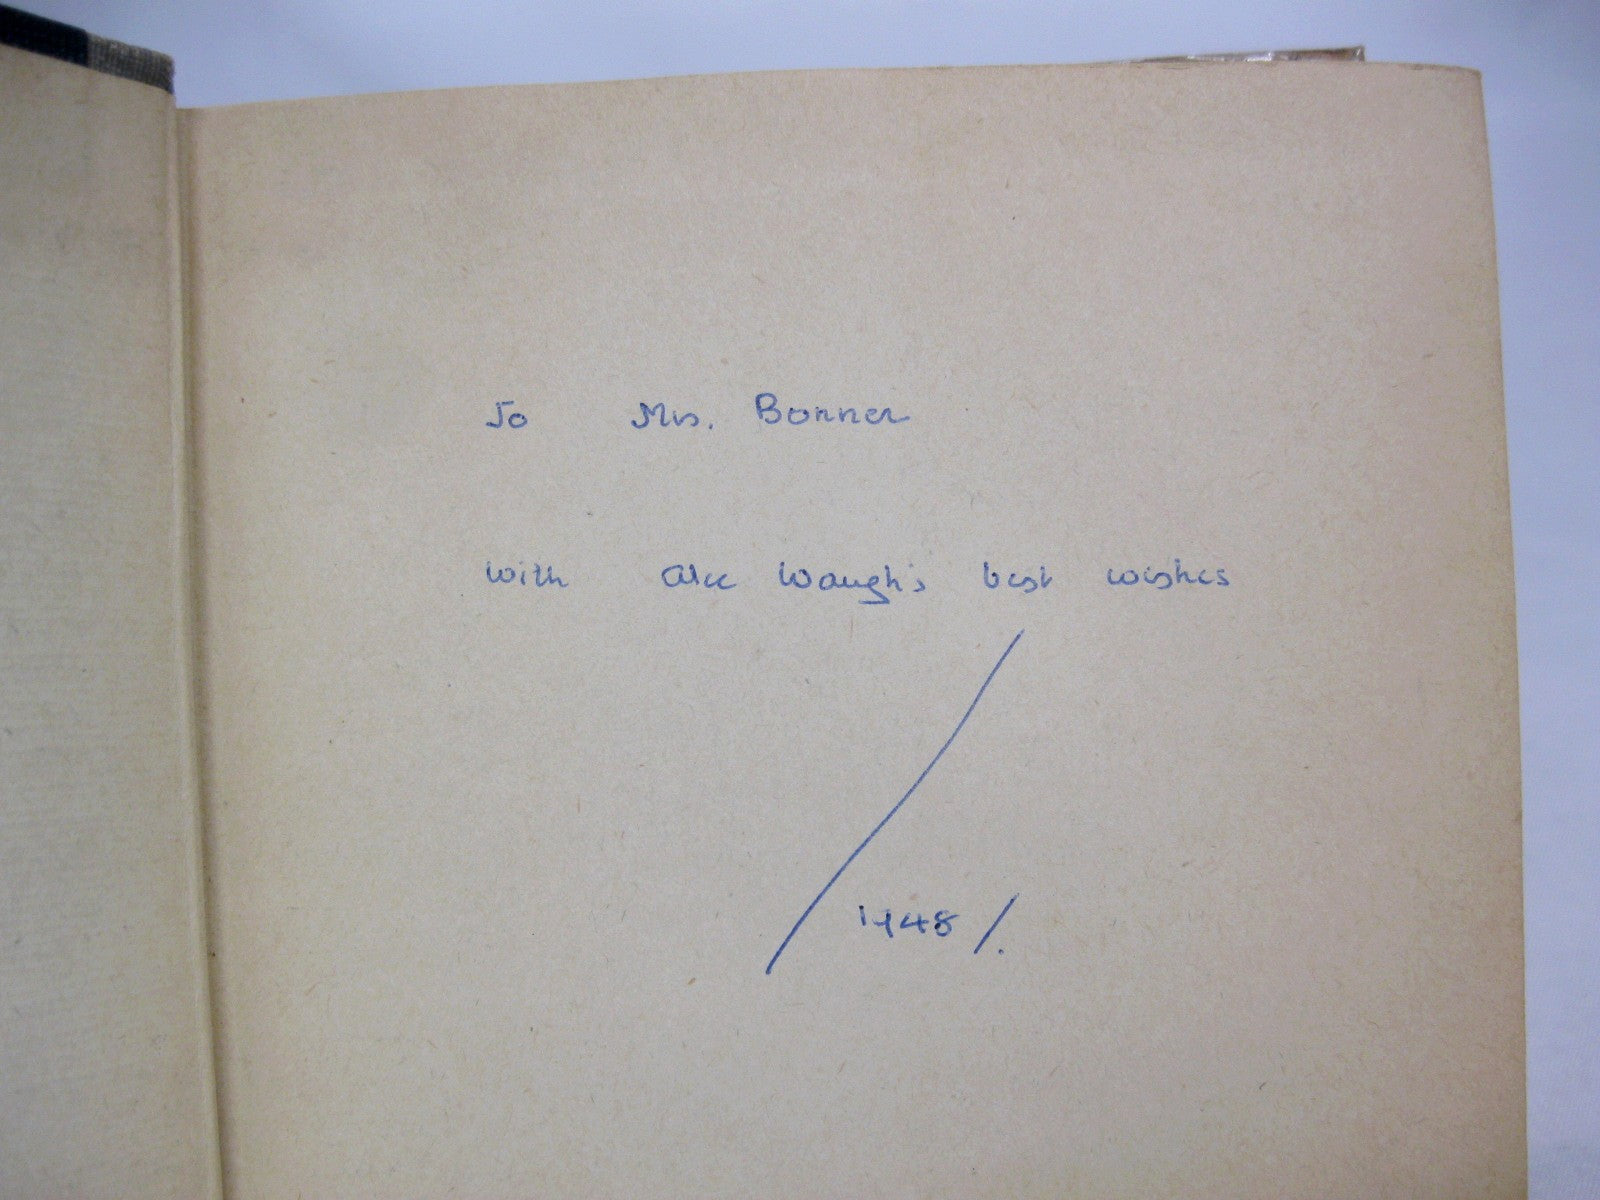 To Mrs. Bonner
with Alec Waugh's best wishes
1948 /.